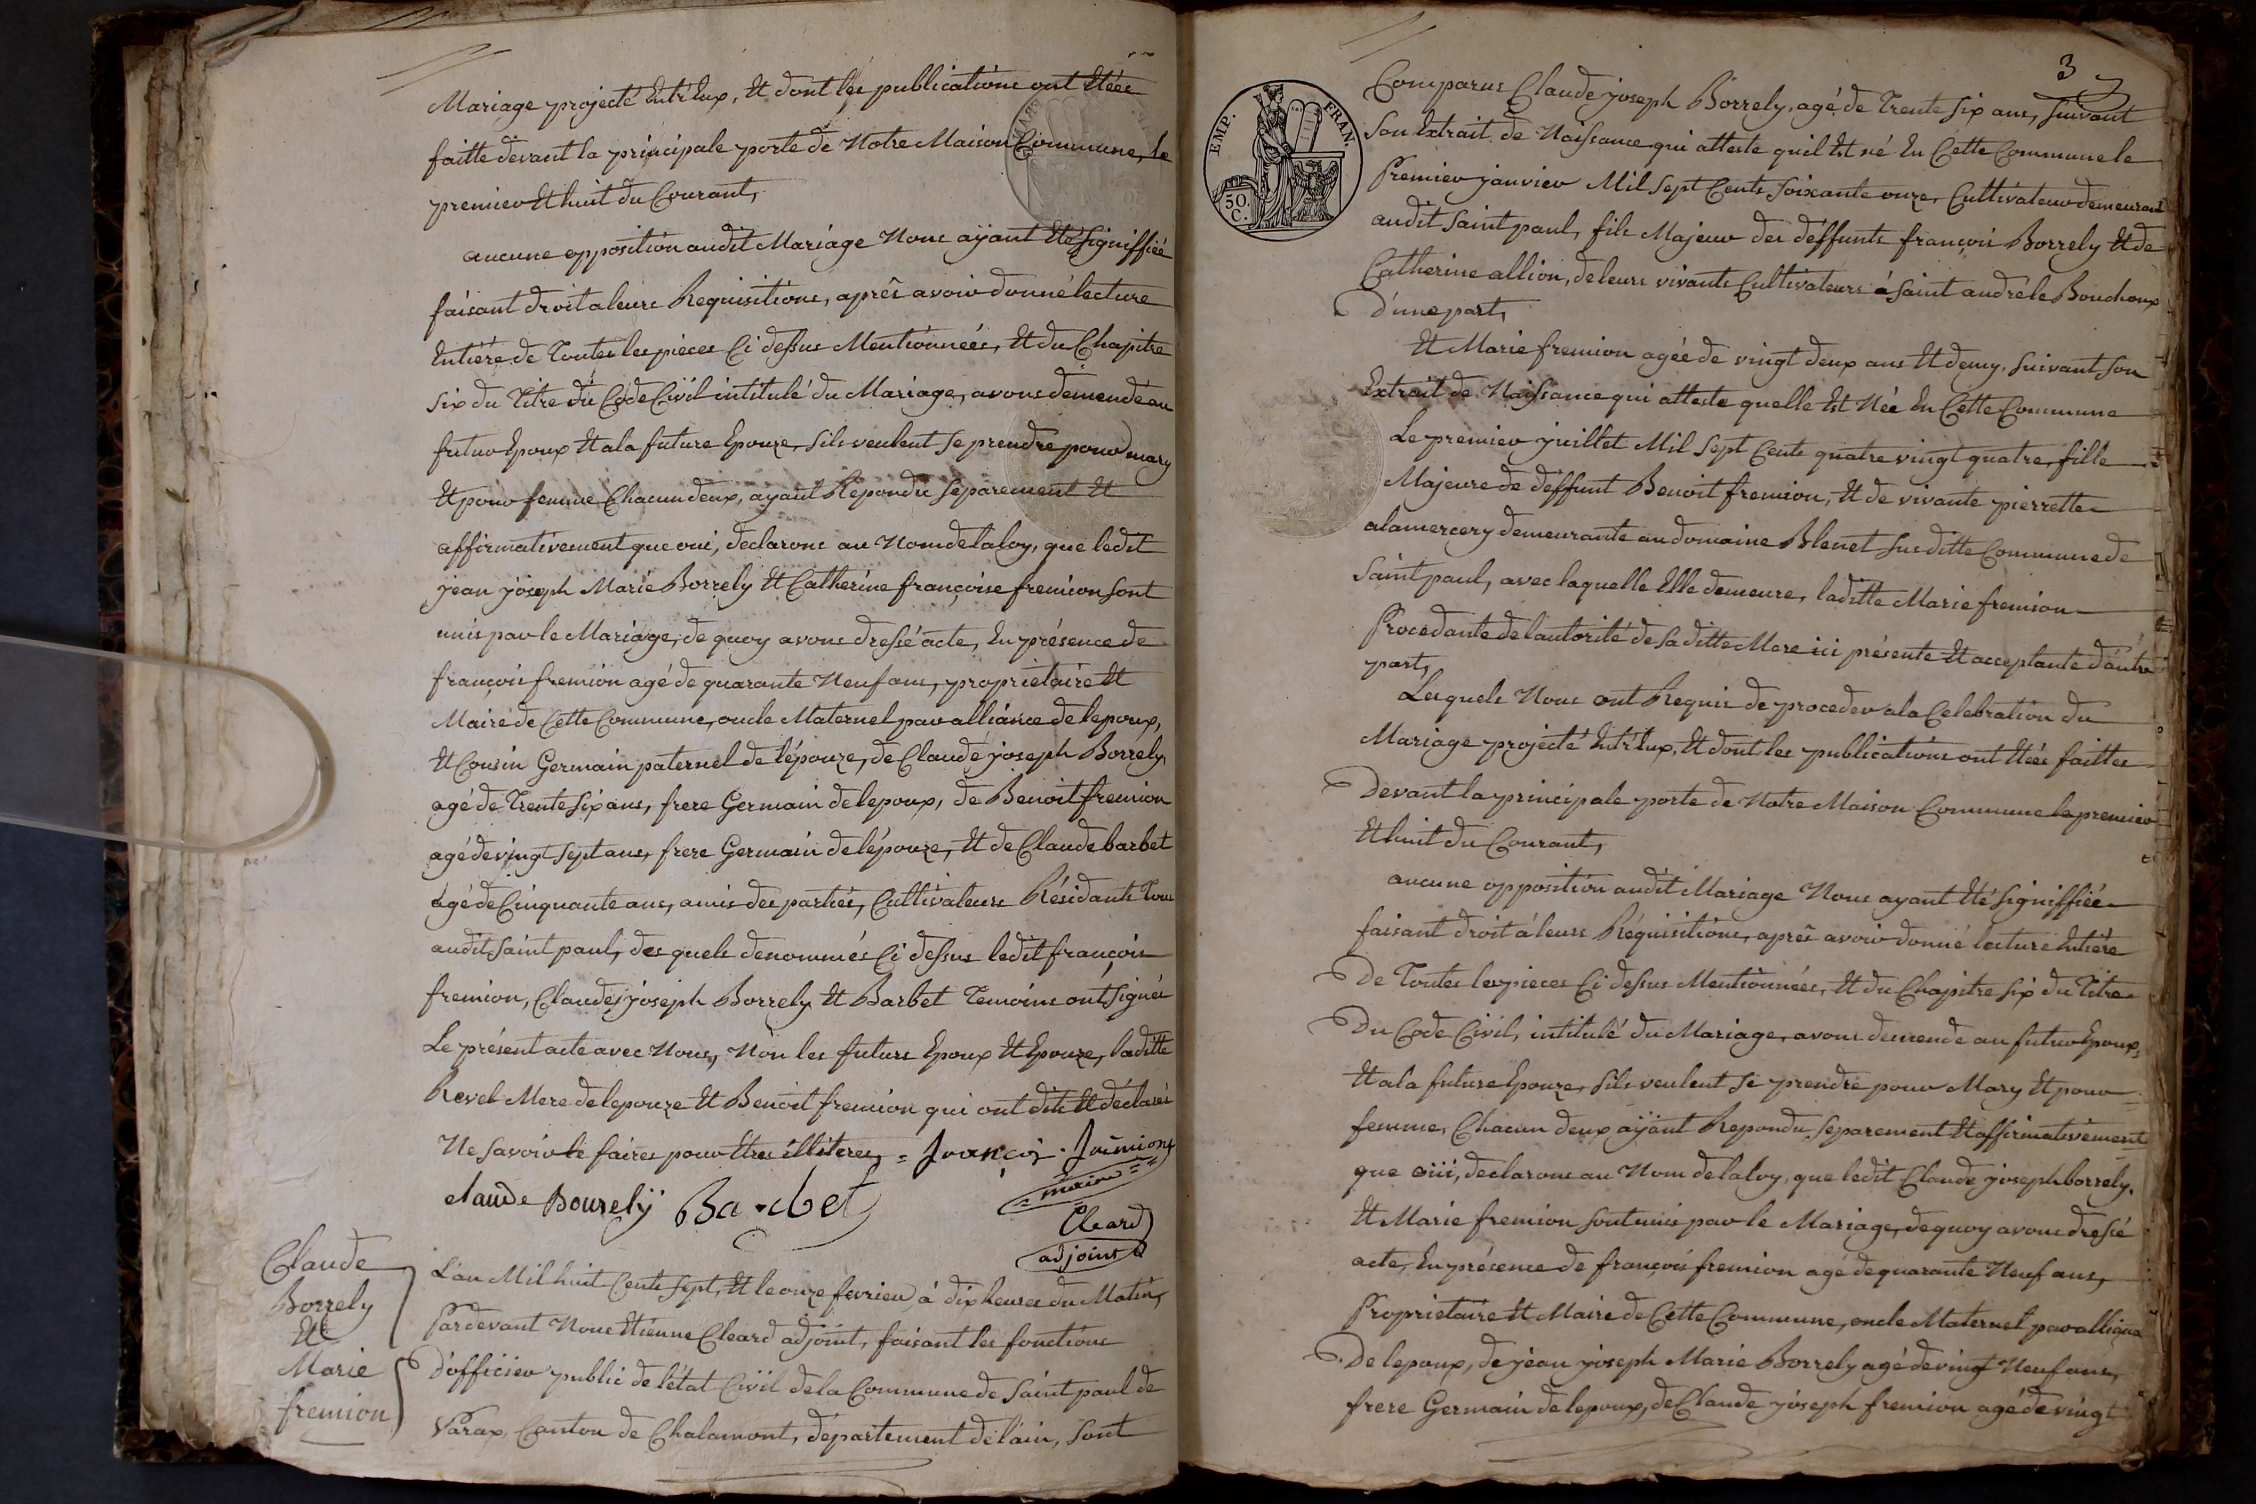 Mariage projecté Entr'Eux, Et dont les publications ont Etées
faitte devant la principale porte de Notre Maison Commune, le
premier Et huit du Courant,
aucune opposition audit Mariage Nous aÿant Eté Signiffiée
faisant droit a leurs Requisitions, aprês avoir donné lecture
Entiére de Toutes les pieces Ci dessus Mentionneés, Et du Chapitre
Six du Titre du Code Civil intitulé du Mariage, avons demendé au
futur Epoux Et a la future Epouze, Sils veulent Se prendre pour mary
Et pour femme Chacun deux, ayant Repondu Separement Et
affirmativement que oui, declarons au Nom de la loy, que ledit
jean joseph Marie Borrely Et Catherine françoise fremion Sont
unis par le Mariage, de quoy avons dressé acte, En présence de
françois fremion agé de quarante Neuf ans, proprietaire Et
Maire de Cette Commune, oncle Maternel par alliance de lepoux,
Et Cousin Germain paternel de lépouze, de Claude joseph Borrely
agé de Trente Six ans, frere Germain de lepoux, de Benoit fremion
agé de vingt Sept ans, frere Germain de lépouze, Et de Claude barbet
agé de Cinquante ans, amis des parties, Cultivateurs Résidants Tous
audit Saint paul, des quels denommés Ci dessus ledit françois
fremion, Claude joseph Borrely Et Barbet Temoins ont Signés
Le présent acte avec Nous, Non les futurs Epoux Et Epouze, laditte
Revel Mere de lepouze Et Benoit fremion qui ont dits Et déclarés
Ne Savoir le faires pour Etres illiteres = françois fremion
maire
claude Bourelÿ Barbet
Cleard
adjoint
Claude
Borrely
Et
Marie
fremion
L'an Mil huit Cents Sept, Et le onze fevrier, à dix heures du Matin,
Pardevant Nous Etienne Cleard adjoint, faisant les fonctions
D'officier public de l'état Civil de la Commune de Saint paul de
Varax Canton de Chalamont, département de l'ain, Sont
3
EMP. FRAN.
50.
C.
Comparus Claude joseph Borrely, agé de Trente Six ans, Suivant
Son Extrait de Naissance qui atteste quil Est né En Cette Commune le
Premier janvier Mil Sept Cents Soixante onze, Cultivateur demeurant
audit Saint paul, fils Majeur des deffunts françois Borrely Et de
Catherine allion, de leurs vivants Cultivateurs á Saint andré le Bouchoux
D'une part,
Et Marie fremion agée de vingt deux ans Et demy, Suivant Son
Extrait de Naissance qui atteste quelle Est Née En Cette Commune
Le premier juillet Mil Sept Cents quatre vingt quatre, fille
Majeure de deffunt Benoit fremion, Et de vivante pierrette
alamercery demeurante au domaine Blenet Susditte Commune de
Saint paul, avec laquelle Elle demeure, laditte Marie fremion
Procedante de l'autorité de Sa ditte Mere ici présente Et acceptante d'autre
part,
Lesquels Nous ont Requis de proceder a la Celebration du
Mariage projecté Entr'Eux, Et dont les publications ont Etées faittes
Devant la principale porte de Notre Maison Commune le premier
Et huit du Courant,
aucune opposition audit Mariage Nous ayant Eté Signiffiée
faisant droit á leurs Réquisitions, aprês avoir donné lecture Entiére
De Toutes les pieces Ci dessus Mentionnées, Et du Chapitre Six du Titre
Du Code Civil, intitulé du Mariage, avons demende au futur Epoux,
Et a la future Epouze, Sils veulent Se prendre pour Mary Et pour
femme, Chacun deux aÿant Repondu Separement Et affirmativement
que oüi, declarons au Nom de la loy, que ledit Claude joseph borrely,
Et Marie fremion Sont unis par le Mariage, de quoy avons dressé
acte, En présence de françois fremion agé de quarante Neuf ans,
Proprietaire Et Maire de Cette Commune, oncle Maternel par alliance
De lepoux, de jean joseph Marie Borrely agé de vingt Neuf ans,
frere Germain de lepoux, de Claude joseph fremion agé de vingt